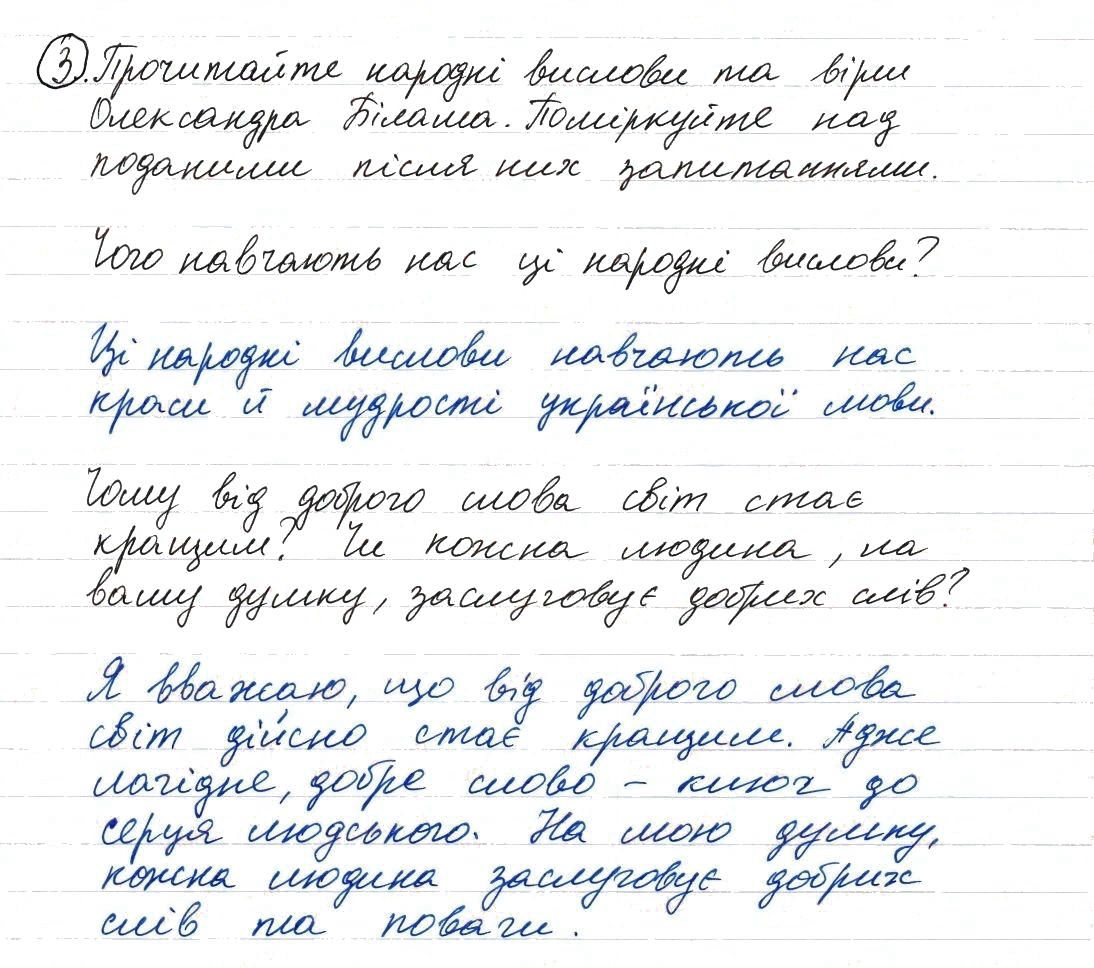 3. Прочитайте народні вислови та вірш
Олександра Білаша. Поміркуйте над
поданими після них запитаннями.
Чого навчають нас ці народні вислови?
Ці народні вислови навчають нас
краси й мудрості української мови.
Чому від доброго слова світ стає
кращим? Чи кожна людина, на
вашу думку, заслуговує добрих слів?
Я вважаю, що від доброго слова
світ дійсно стає кращим. Адже
лагідне, добре слово - ключ до
серця людського. На мою думку,
кожна людина заслуговує добрих
слів та поваги.